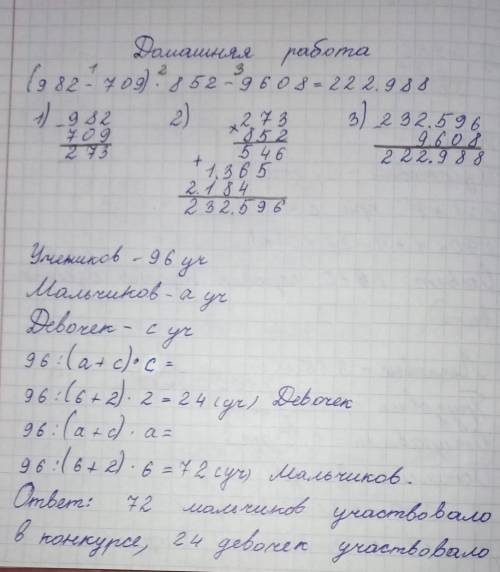 Домашняя работа
(982-709)·852-9608=222.988
1 2 3
1) 2) 3)
-982
709
273
×273
852
546
+
1.365
2.184
232.596
-232.596
9608
222.988
Учеников - 96 уч
Мальчиков - а уч
Девочек - с уч
96:(а+с)·с=
96:(6+2)·2=24(уч) Девочек
96:(а+с)·а=
96:(6+2)·6=72(уч) Мальчиков.
Ответ: 72 мальчиков участвовало
в конкурсе, 24 девочек участвовало